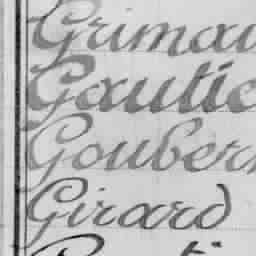 Grimau
Gautie
Gouber
Girard